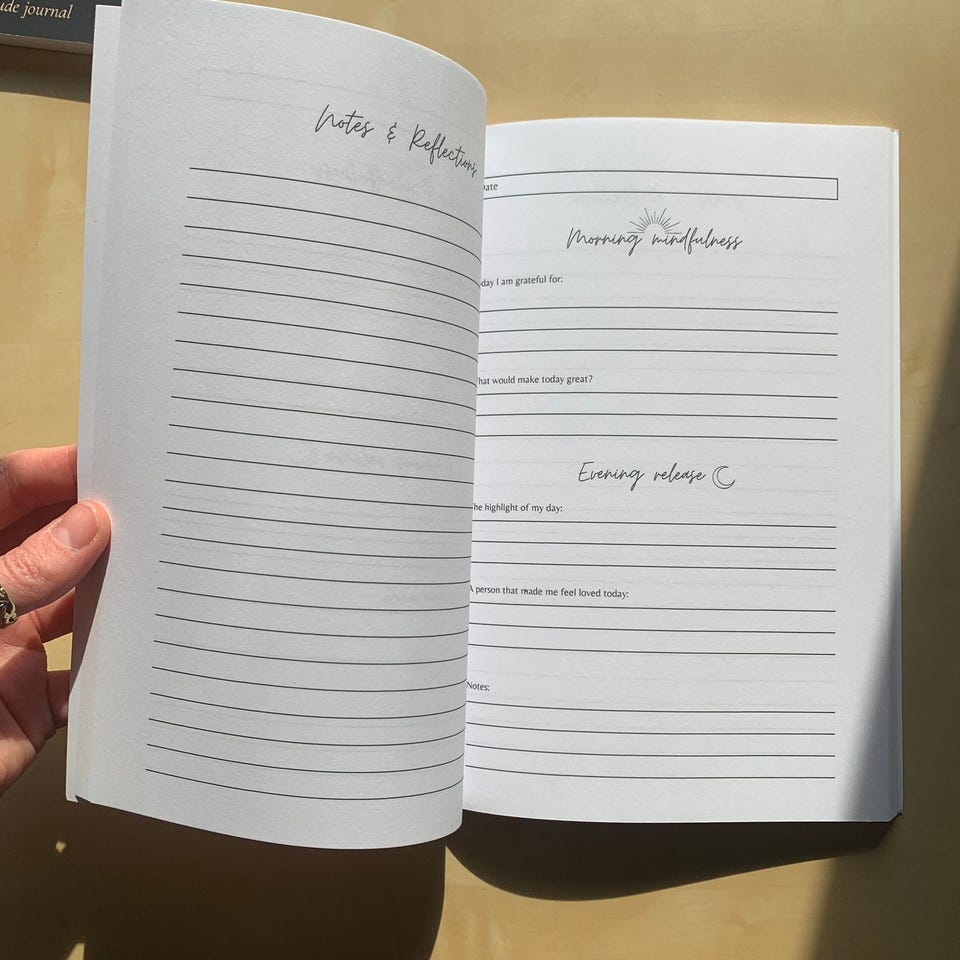 ude journal
Notes & Reflections
ate
Morning mindfulness
day I am grateful for:
hat would make today great?
Evening release
he highlight of my day:
A person that made me feel loved today:
Notes: